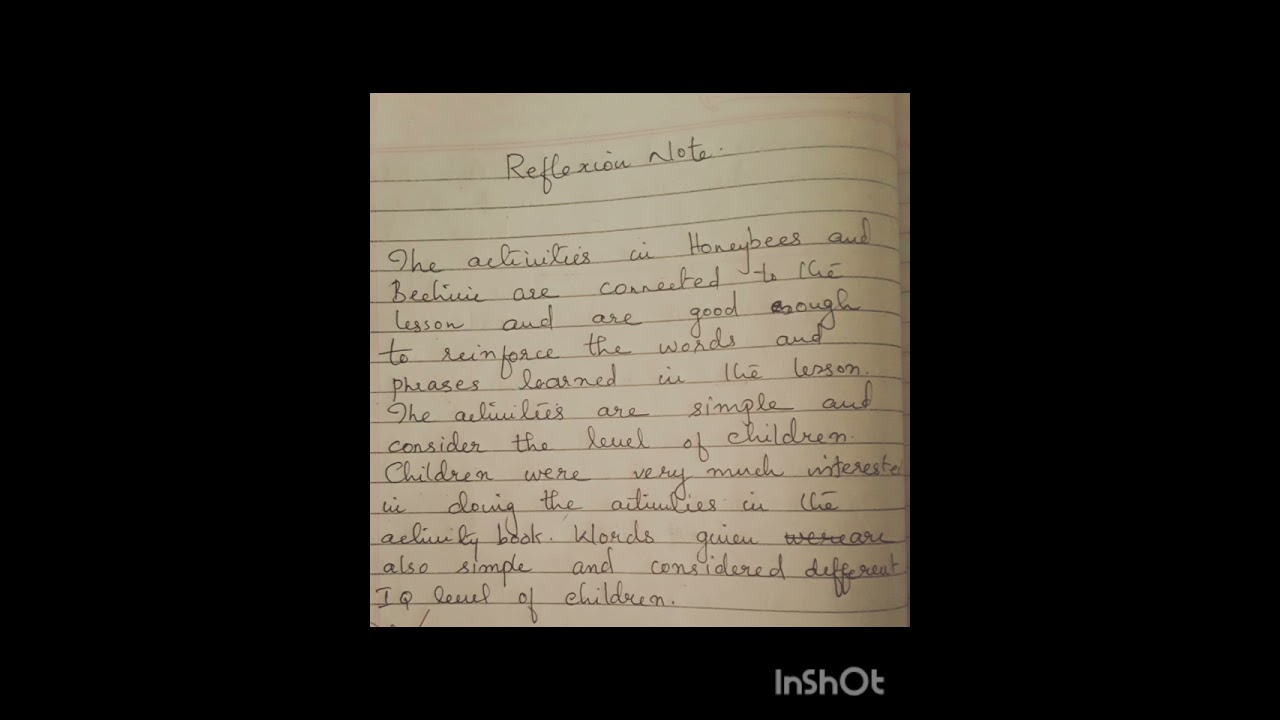 Reflexion Note.
The activities in Honeybees and
Beehive are connected to the
lesson and are good enough
to reinforce the words and
phrases learned in the lesson.
The activities are simple and
consider the level of children.
Children were very much intereste
in doing the activities in the
activity book. Words given were are
also simple and considered different
IQ level of children.
InShOt